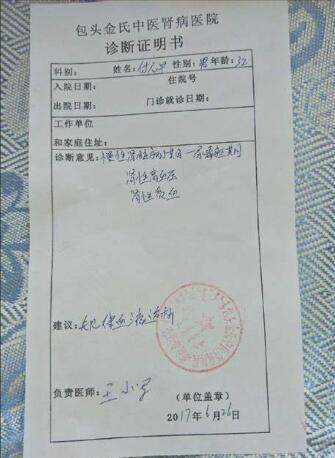 包头金氏中医肾病医院
诊断证明书
科别： 姓名： 性别：男 年龄：32
入院日期： 住院号
出院日期： 门诊就诊日期：
工作单位
和家庭住址：
诊断意见：慢性肾脏病5期 尿毒症期
肾性高血压
肾性贫血
建议：规律血液透析
负责医师：王小军 （单位盖章）
2017年6月26日